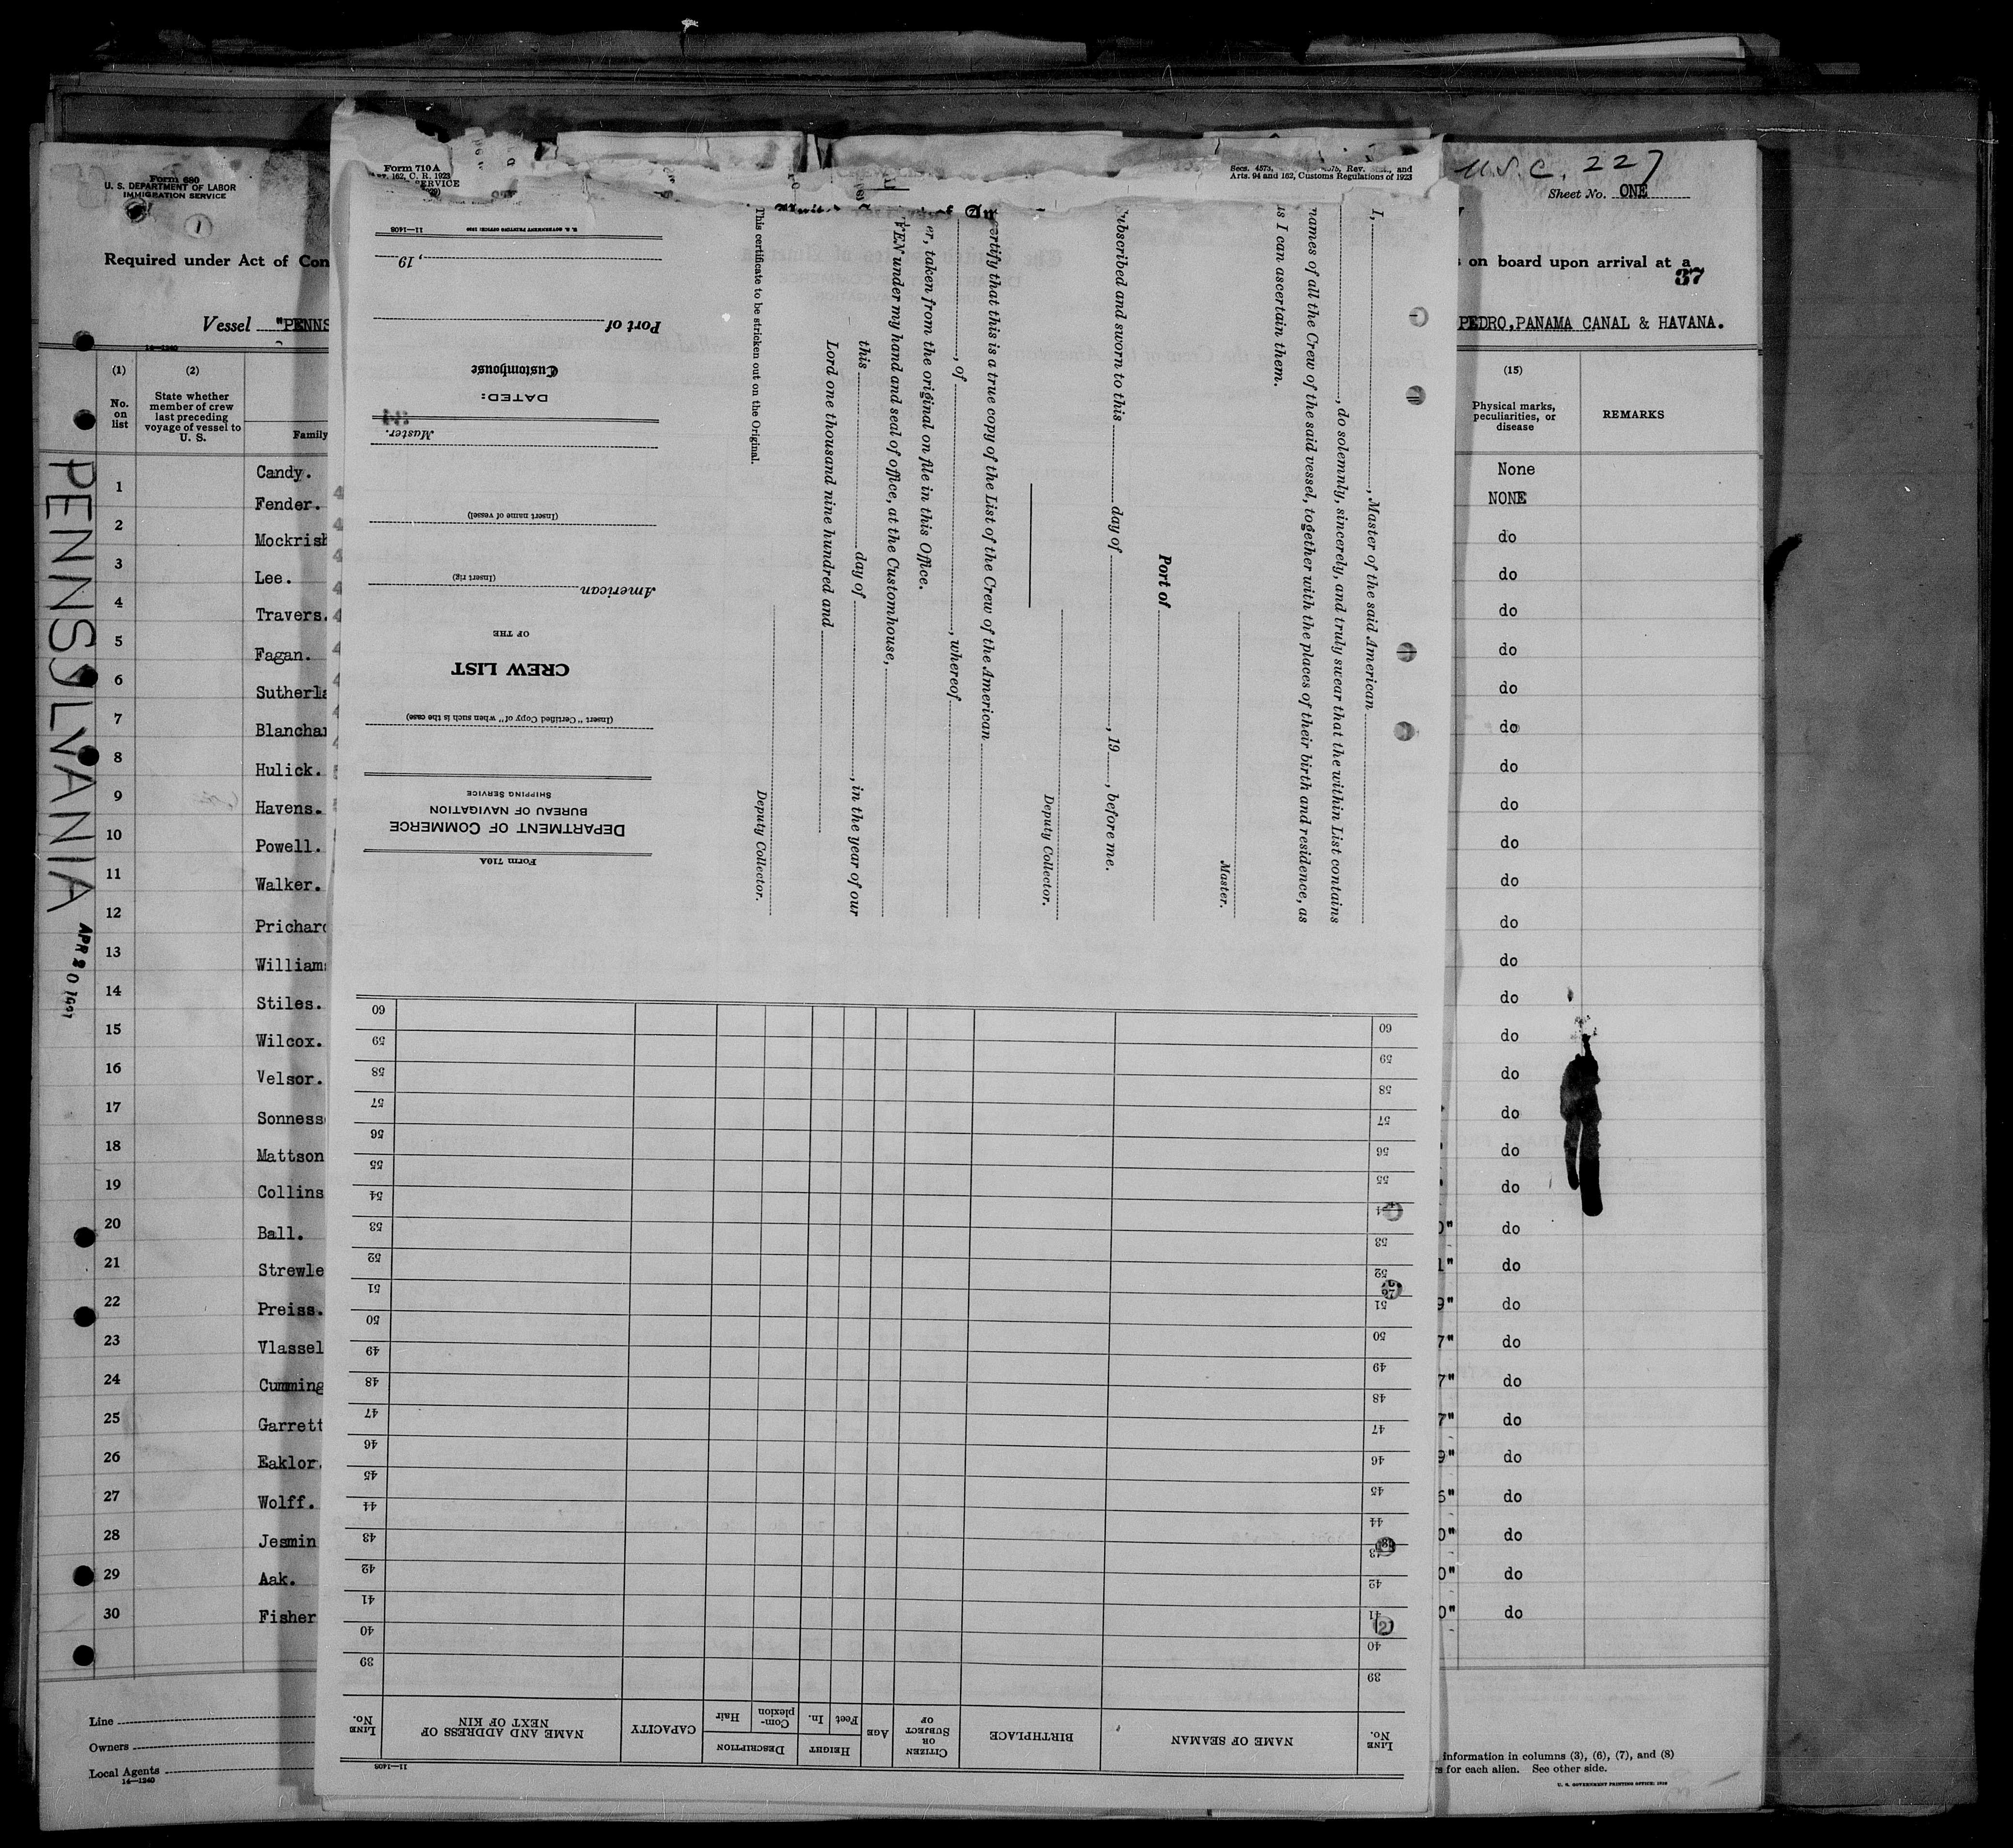 U.S.C. 227
Sheet No. ONE
Form 680
U. S. DEPARTMENT OF LABOR
IMMIGRATION SERVICE
1
Required under Act of Con
s on board upon arrival at a
37
Vessel "PENNS
PEDRO, PANAMA CANAL & HAVANA.
14—1240
(1)
No. on list
(2)
State whether member of crew last preceding voyage of vessel to U. S.
Family
(15)
Physical marks, peculiarities, or disease
REMARKS
PENNSYLVANIA
APR 20
Candy. None
1 Fender. NONE
2 Mockrish do
3 Lee. do
4 Travers. do
5 Fagan. do
6 Sutherla do
7 Blanchar do
8 Hulick. do
9 Havens. do
10 Powell. do
11 Walker. do
12 Prichard do
13 Williams do
14 Stiles. do
15 Wilcox. do
16 Velsor. do
17 Sonness do
18 Mattson do
19 Collins do
20 Ball. 0" do
21 Strewle 1" do
22 Preiss. 9" do
23 Vlassel 7" do
24 Cumming 7" do
25 Garrett 7" do
26 Eaklor. 9" do
27 Wolff. 5" do
28 Jesmin 0" do
29 Aak. 0" do
30 Fisher 0" do
Line
Owners
Local Agents
14—1240
information in columns (3), (6), (7), and (8)
rs for each alien. See other side.
U. S. GOVERNMENT PRINTING OFFICE: 1929
Form 710A
162, C. R. 1923
ERVICE
Secs. 4573, 4575, Rev. and
Arts. 94 and 162, Customs Regulations of 1923
I, , Master of the said American
, do solemnly, sincerely, and truly swear that the within List contains
names of all the Crew of the said vessel, together with the places of their birth and residence, as
as I can ascertain them.
Master.
Port of
ubscribed and sworn to this day of , 19 , before me.
Deputy Collector.
ertify that this is a true copy of the List of the Crew of the American
, of , whereof
er, taken from the original on file in this Office.
EN under my hand and seal of office, at the Customhouse,
this day of , in the year of our
Lord one thousand nine hundred and
Deputy Collector.
This certificate to be stricken out on the Original.
Form 710A
DEPARTMENT OF COMMERCE
BUREAU OF NAVIGATION
SHIPPING SERVICE
(Insert "Certified Copy of" when such is the case)
CREW LIST
OF THE
American
(Insert rig)
(Insert name of vessel)
Master.
DATED:
Customhouse
Port of
, 19
11—1408 U. S. GOVERNMENT PRINTING OFFICE: 1930
11—1408
LINE No.
NAME OF SEAMAN
BIRTHPLACE
CITIZEN OR SUBJECT OF
AGE
HEIGHT
Feet
In.
DESCRIPTION
Complexion
Hair
CAPACITY
NAME AND ADDRESS OF NEXT OF KIN
LINE No.
39 39
40 40
41 41
42 42
43 43
44 44
45 45
46 46
47 47
48 48
49 49
50 50
51 51
52 52
53 53
54 54
55 55
56 56
57 57
58 58
59 59
60 60